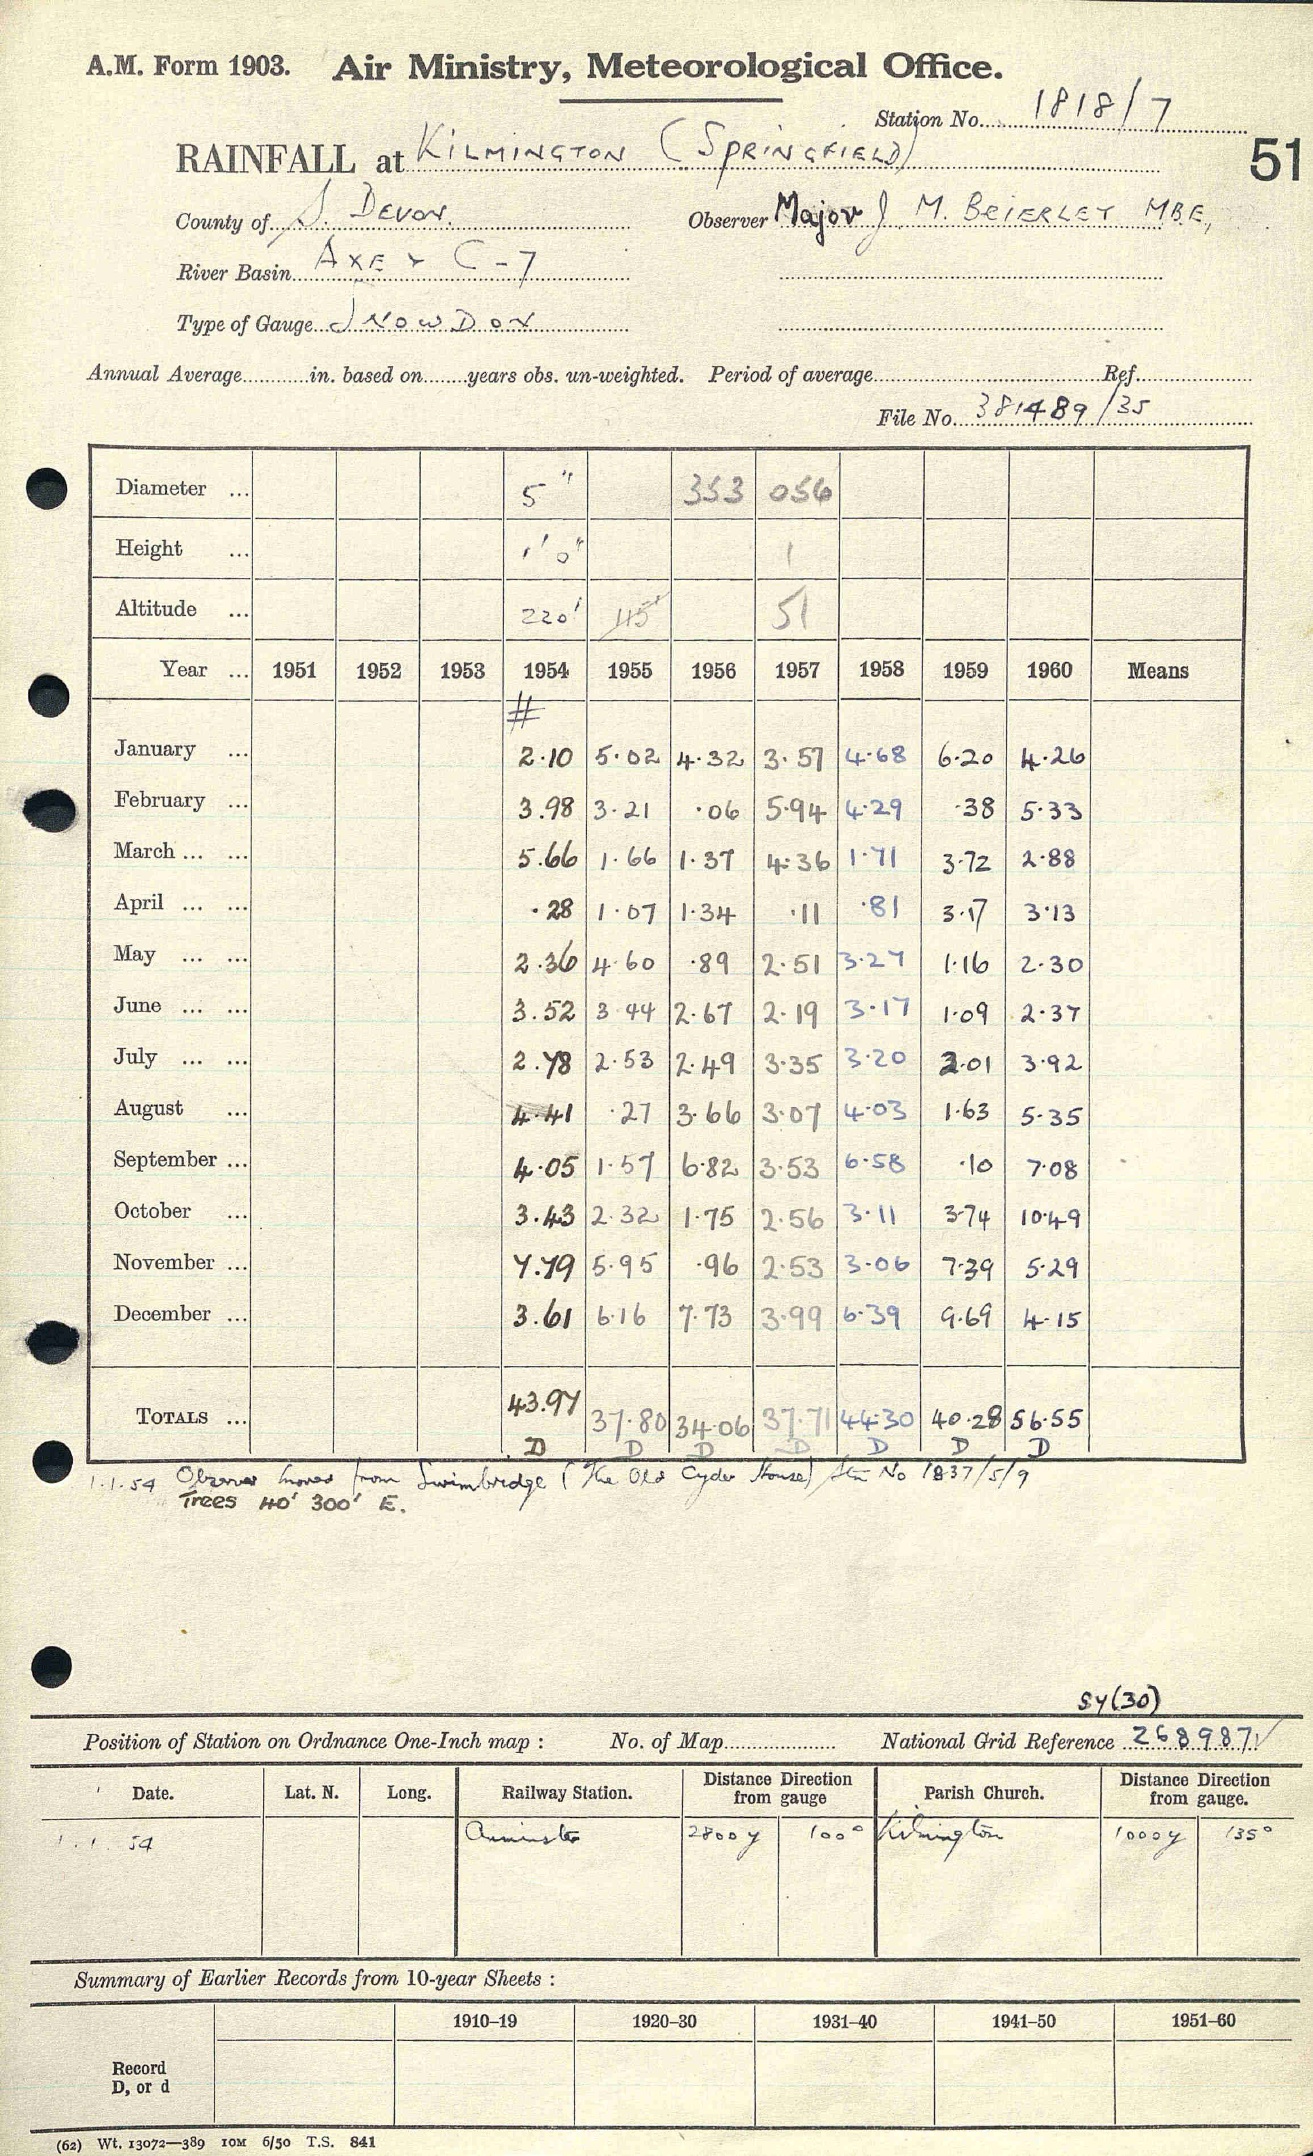 A.M. Form 1903. Air Ministry, Meteorological Office.
Station No. 1818/7
RAINFALL at KILMINGTON (SPRINGFIELD)
51
County of S. DEVON. Observer Major J. M. BEIERLEY MBE,
River Basin AXE & C-7
Type of Gauge SNOWDON
Annual Average in. based on years obs. un-weighted. Period of average Ref.
File No. 381489/35
Diameter ... 5" 353 056
Height ... 1'0" 1
Altitude ... 220' 115' 51
Year ... 1951 1952 1953 1954 1955 1956 1957 1958 1959 1960 Means
#
January ... 2.10 5.02 4.32 3.57 4.68 6.20 4.26
February ... 3.98 3.21 .06 5.94 4.29 .38 5.33
March ... ... 5.66 1.66 1.37 4.36 1.71 3.72 2.88
April ... ... .28 1.07 1.34 .11 .81 3.17 3.13
May ... ... 2.36 4.60 .89 2.51 3.27 1.16 2.30
June ... ... 3.52 3.44 2.67 2.19 3.17 1.09 2.37
July ... ... 2.78 2.53 2.49 3.35 3.20 2.01 3.92
August ... 4.41 .27 3.66 3.07 4.03 1.63 5.35
September ... 4.05 1.57 6.82 3.53 6.58 .10 7.08
October ... 3.43 2.32 1.75 2.56 3.11 3.74 10.49
November ... 7.79 5.95 .96 2.53 3.06 7.39 5.29
December ... 3.61 6.16 7.73 3.99 6.39 9.69 4.15
TOTALS ... 43.97 37.80 34.06 37.71 44.30 40.28 56.55
D D D D D D D
1.1.54 Observer moved from Swimbridge (The Old Cyder House) Stn No 1837/5/9
Trees 40' 300' E.
SY(30)
Position of Station on Ordnance One-Inch map : No. of Map National Grid Reference 268987
Date. Lat. N. Long. Railway Station. Distance Direction from gauge Parish Church. Distance Direction from gauge.
1.1.54 Axminster 2800y 100° Kilmington 1000y 135°
Summary of Earlier Records from 10-year Sheets :
1910–19 1920–30 1931–40 1941–50 1951–60
Record
D, or d
(62) Wt. 13072—389 10M 6/50 T.S. 841